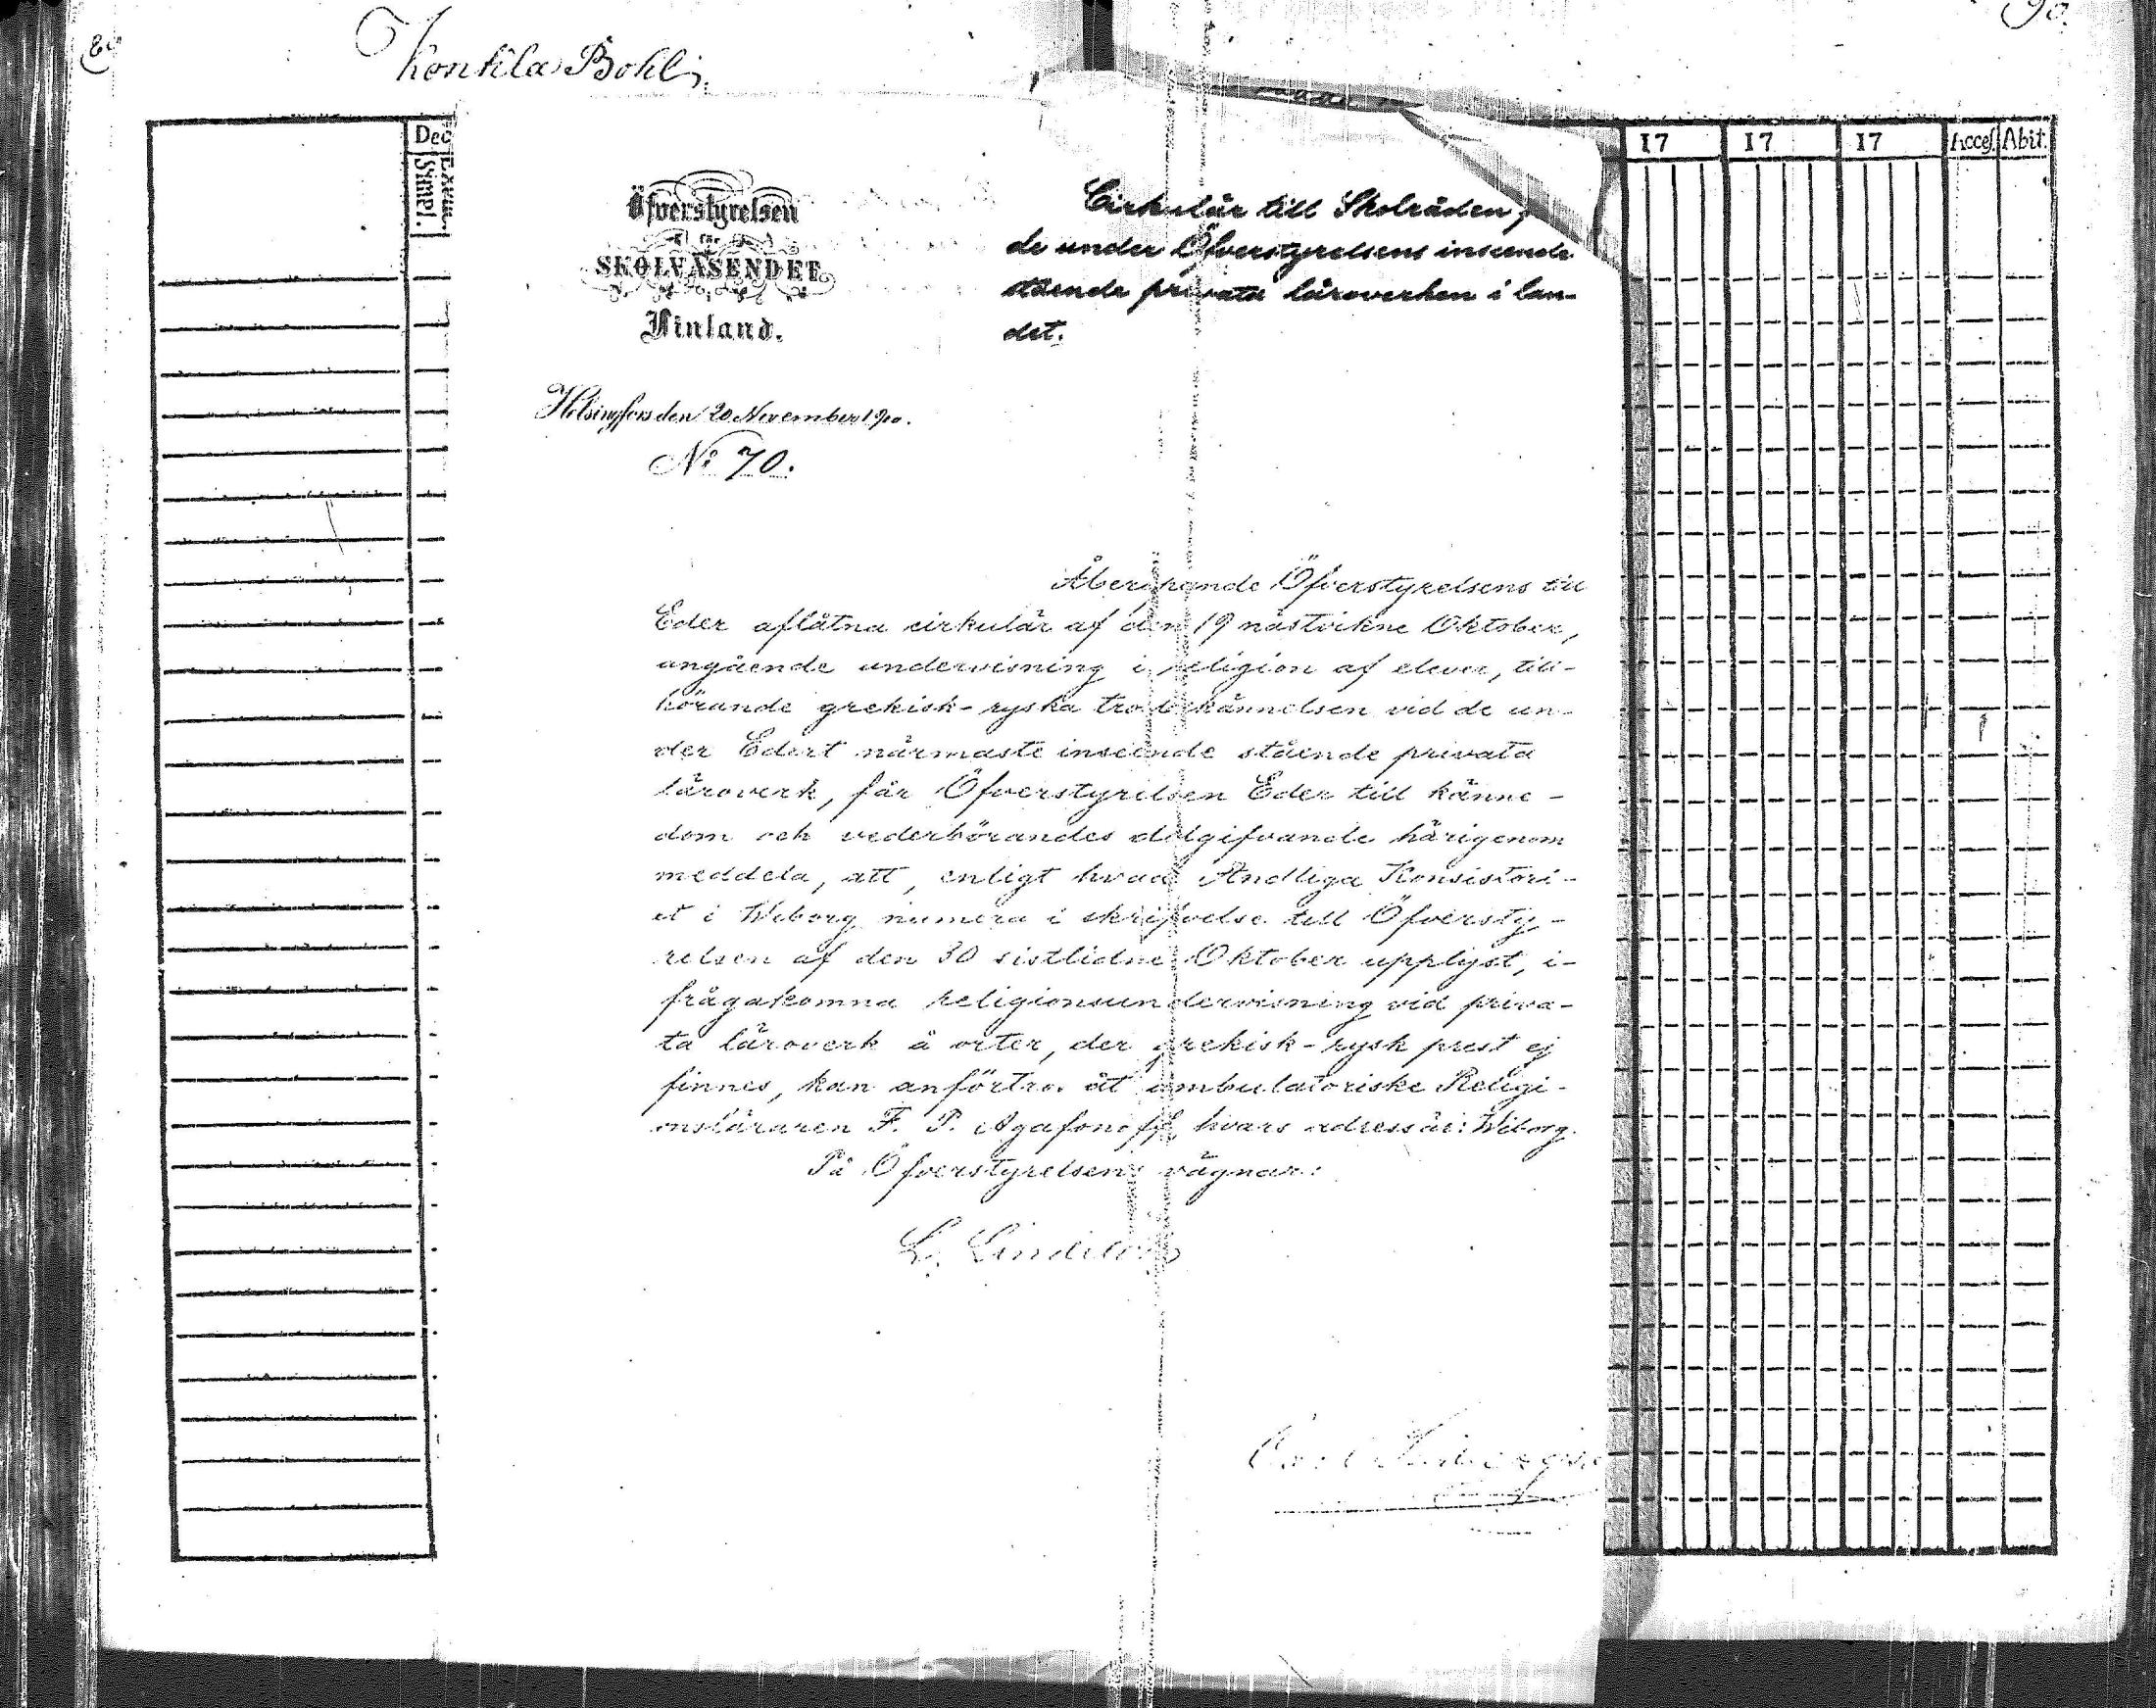 Kontila Bohl
90.
Dec
Exim
Simpl.
17 17 17 Acces. Abit.
Öfverstyrelsen
för
SKOLVÄSENDET
Finland.
Helsingfors den 20 November 1900.
No 70.
Cirkulär till Skolråden
de under Öfverstyrelsens inseende
stående privata läroverken i lan-
det.
Åberopande Öfverstyrelsens till
Eder aflåtna cirkulär af den 19 nästvikne Oktober,
angående undervisning i religion af elever, till-
hörande grekisk-ryska trosbekännelsen vid de un-
der Edert närmaste inseende stående privata
läroverk, får Öfverstyrelsen Eder till känne-
dom och vederbörandes delgifvande härigenom
meddela, att, enligt hvad Andliga Konsistori-
et i Wiborg numera i skrifvelse till Öfversty-
relsen af den 30 sistlidne Oktober upplyst, i-
frågakomna religionsundervisning vid priva-
ta läroverk å orter, der grekisk-rysk prest ej
finnes, kan anförtros åt ambulatoriske Religi-
onsläraren F. P. Agafonoff, hvars adress är: Wiborg.
På Öfverstyrelsens vägnar:
L. Lindelöf